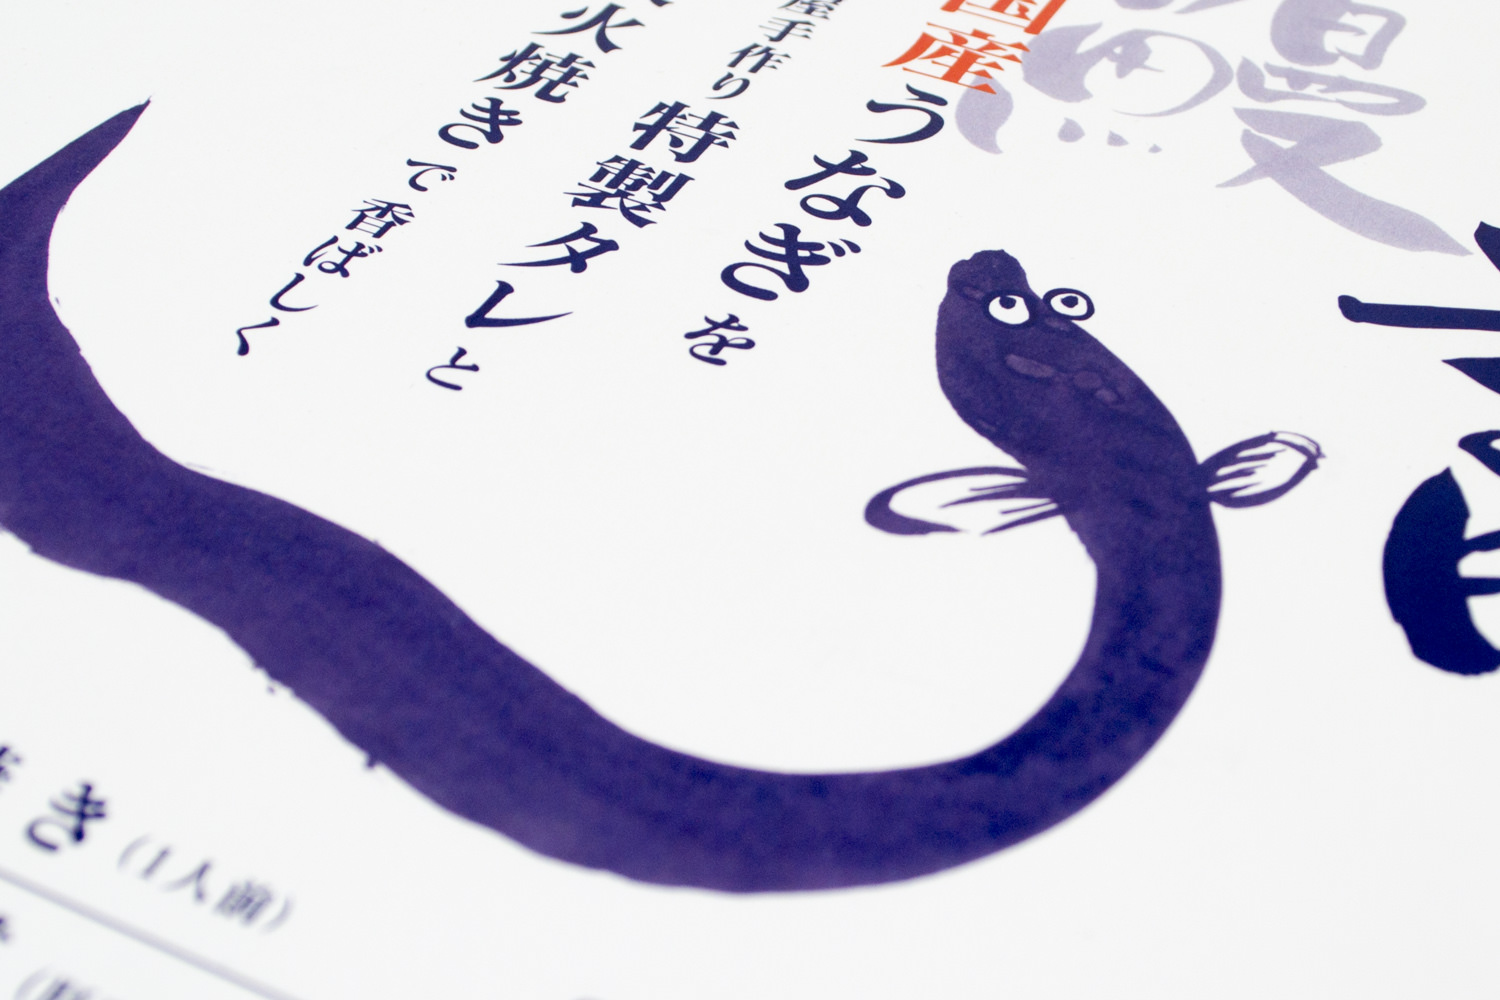 鰻
国産うなぎを
屋手作り特製タレと
火焼きで香ばしく
き（1人前）